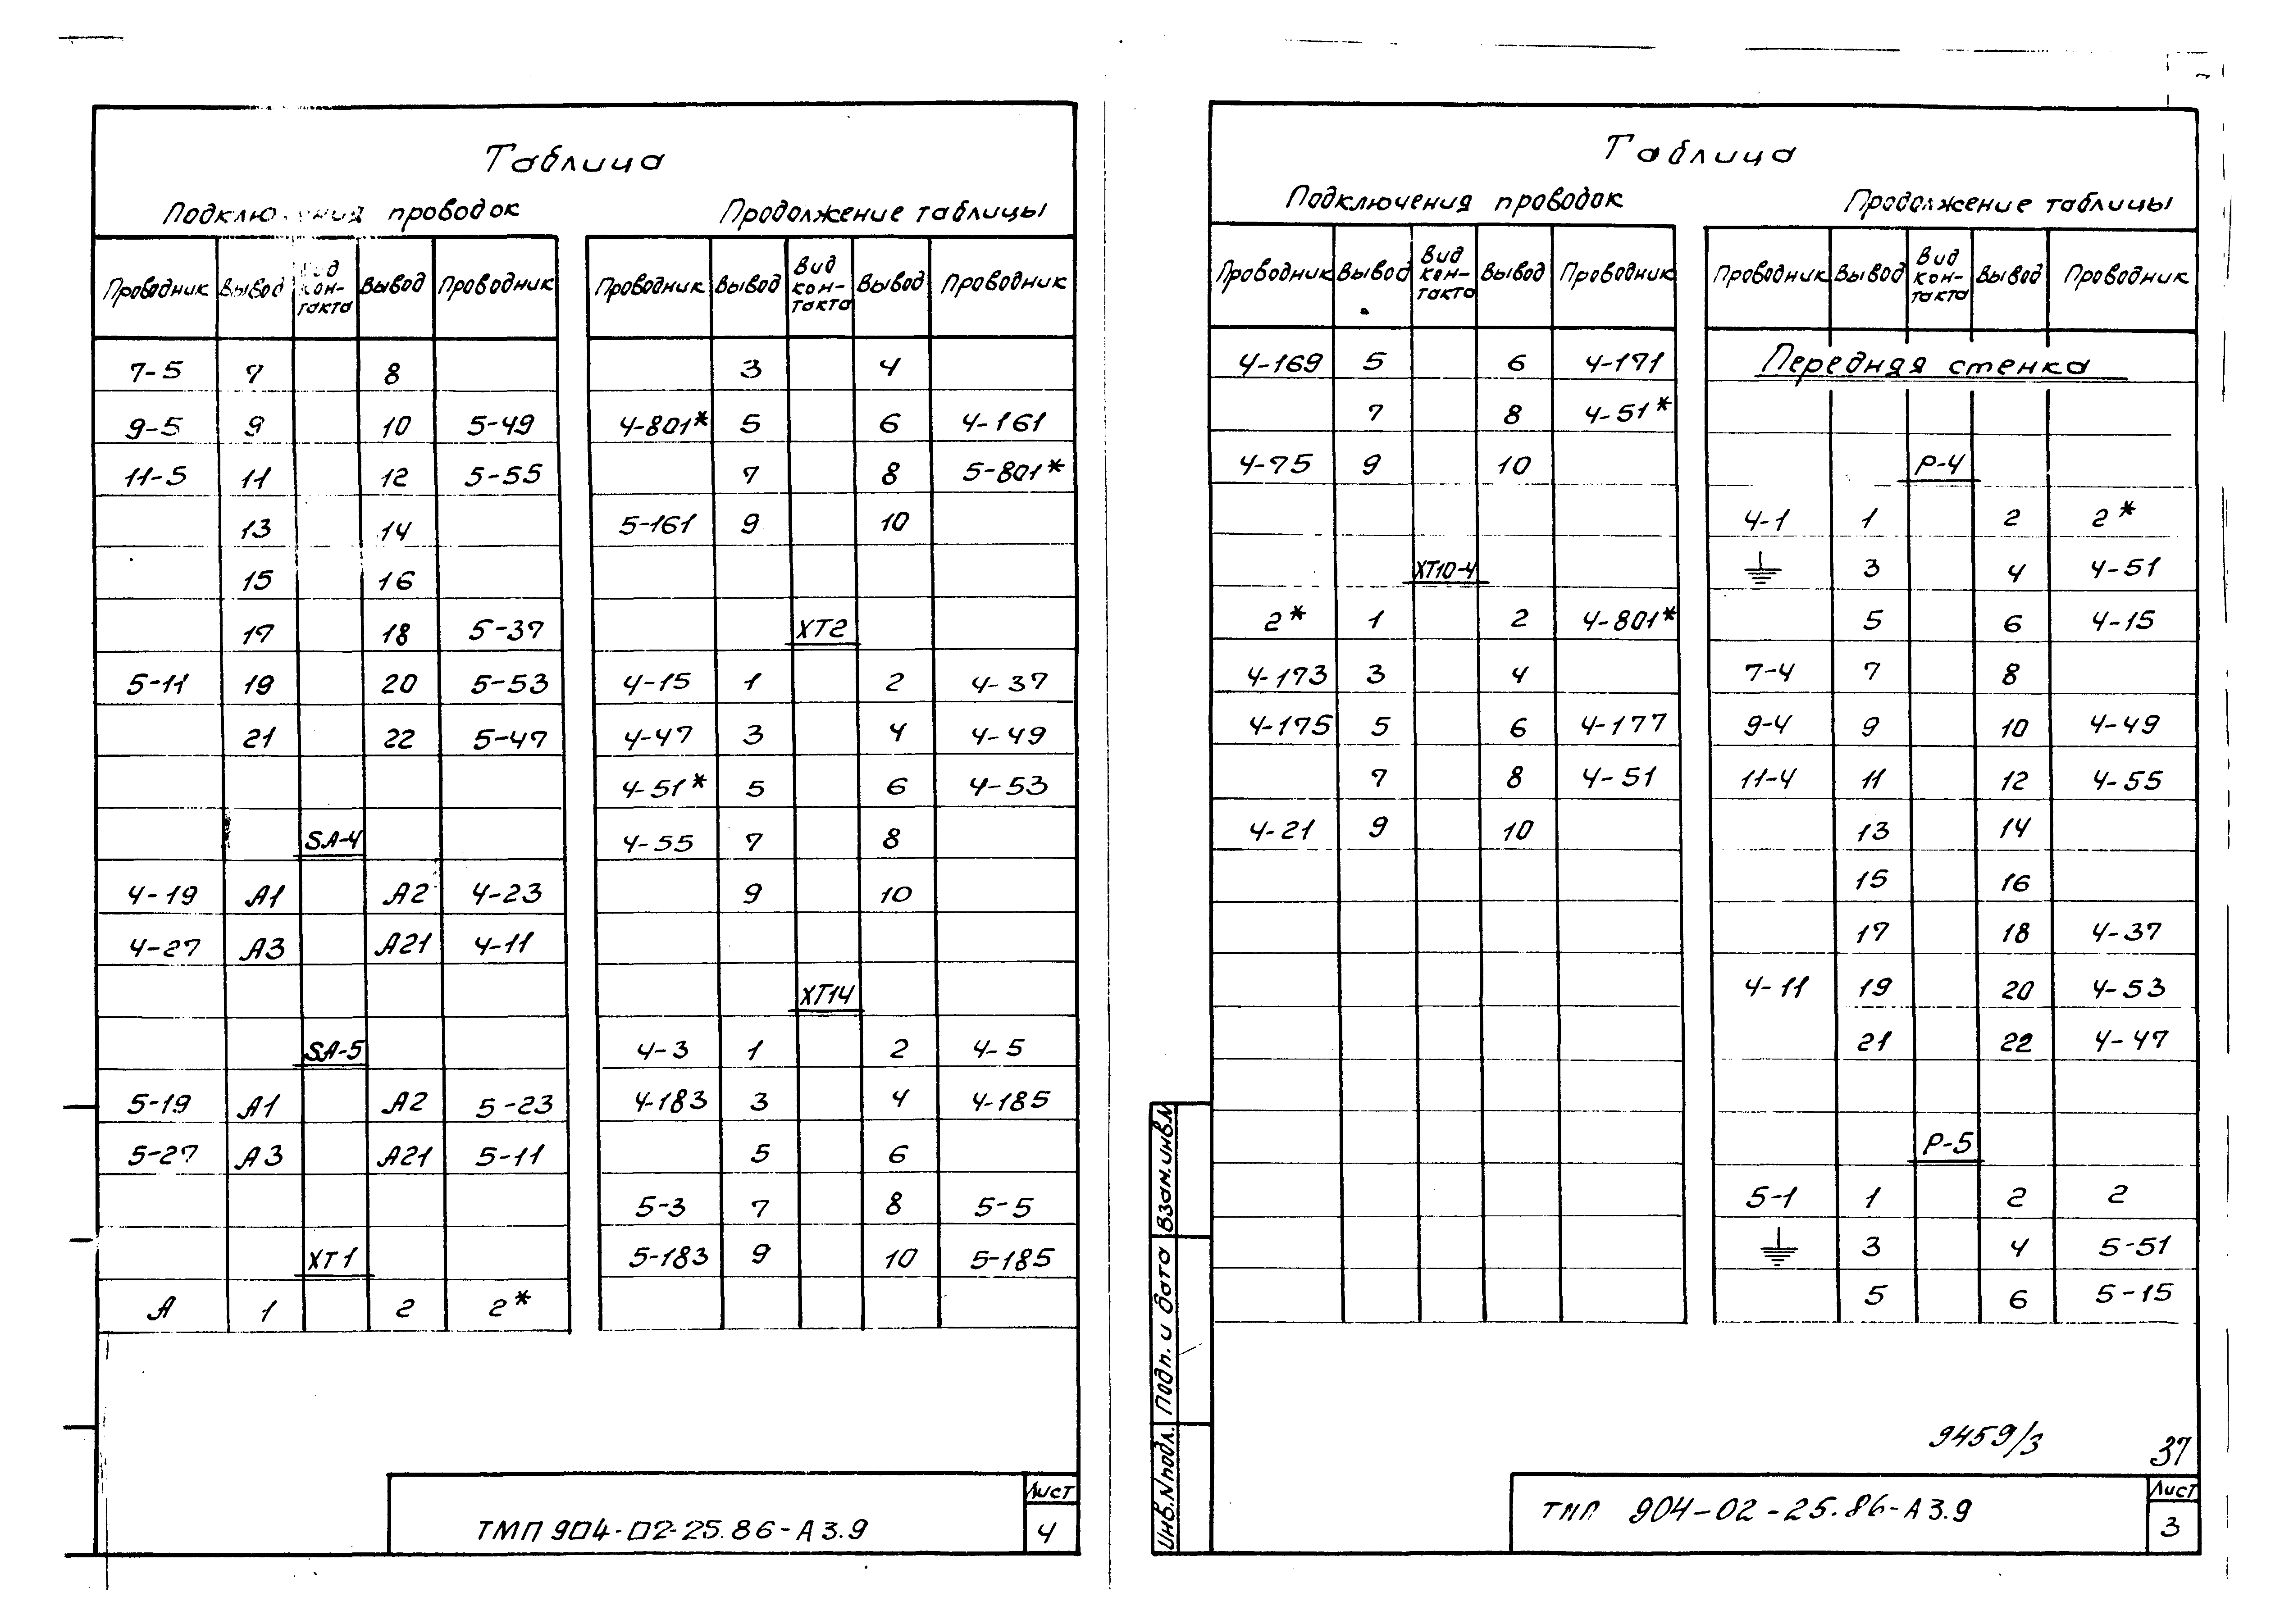 Таблица
Подключения проводок
Проводник Вывод Вид кон-такта Вывод Проводник
7-5 7 8
9-5 9 10 5-49
11-5 11 12 5-55
13 14
15 16
17 18 5-37
5-11 19 20 5-53
21 22 5-47
SA-4
4-19 А1 А2 4-23
4-27 А3 А21 4-11
SA-5
5-19 А1 А2 5-23
5-27 А3 А21 5-11
XT1
А 1 2 2*
Продолжение таблицы
Проводник Вывод Вид кон-такта Вывод Проводник
3 4
4-801* 5 6 4-161
7 8 5-801*
5-161 9 10
XT2
4-15 1 2 4-37
4-47 3 4 4-49
4-51* 5 6 4-53
4-55 7 8
9 10
XT14
4-3 1 2 4-5
4-183 3 4 4-185
5 6
5-3 7 8 5-5
5-183 9 10 5-185
ТМП 904-02-25.86-А3.9
Лист
4
Таблица
Подключения проводок
Проводник Вывод Вид кон-такта Вывод Проводник
4-169 5 6 4-171
7 8 4-51*
4-75 9 10
XT10-4
2* 1 2 4-801*
4-173 3 4
4-175 5 6 4-177
7 8 4-51
4-21 9 10
Продолжение таблицы
Проводник Вывод Вид кон-такта Вывод Проводник
Передняя стенка
Р-4
4-1 1 2 2*
3 4 4-51
5 6 4-15
7-4 7 8
9-4 9 10 4-49
11-4 11 12 4-55
13 14
15 16
17 18 4-37
4-11 19 20 4-53
21 22 4-47
Р-5
5-1 1 2 2
3 4 5-51
5 6 5-15
Взам.инв.N
Подп. и дата
Инв.N подл.
9459/3
37
ТМП 904-02-25.86-А3.9
Лист
3